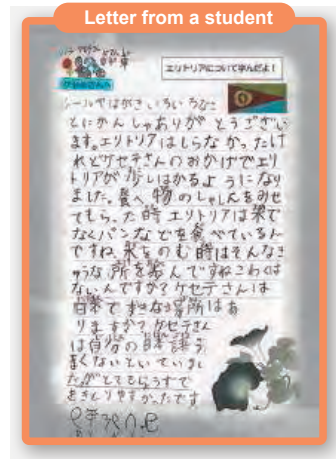 Letter from a student
エリトリアについて学んだよ!
シールやはがきいろいろなこ
とにかんしゃありがとうござい
ます。エリトリアはしらなかったけ
れどケセテさんのおかげでエリ
トリアが少しはかるようになり
ました。食べ物のしゃしんをみせ
てもらった時エリトリアは米で
なくパンなどを食べているん
ですね。米をのむ時はそんなき
な所を歩んですねこわくは
ないんですか?ケセテさんは
日本ですきな場所はあ
りますか?ケセテさん
は自分の日本語う
まくないといっていまし
たがとてもらうずで
ききとりやすかったです